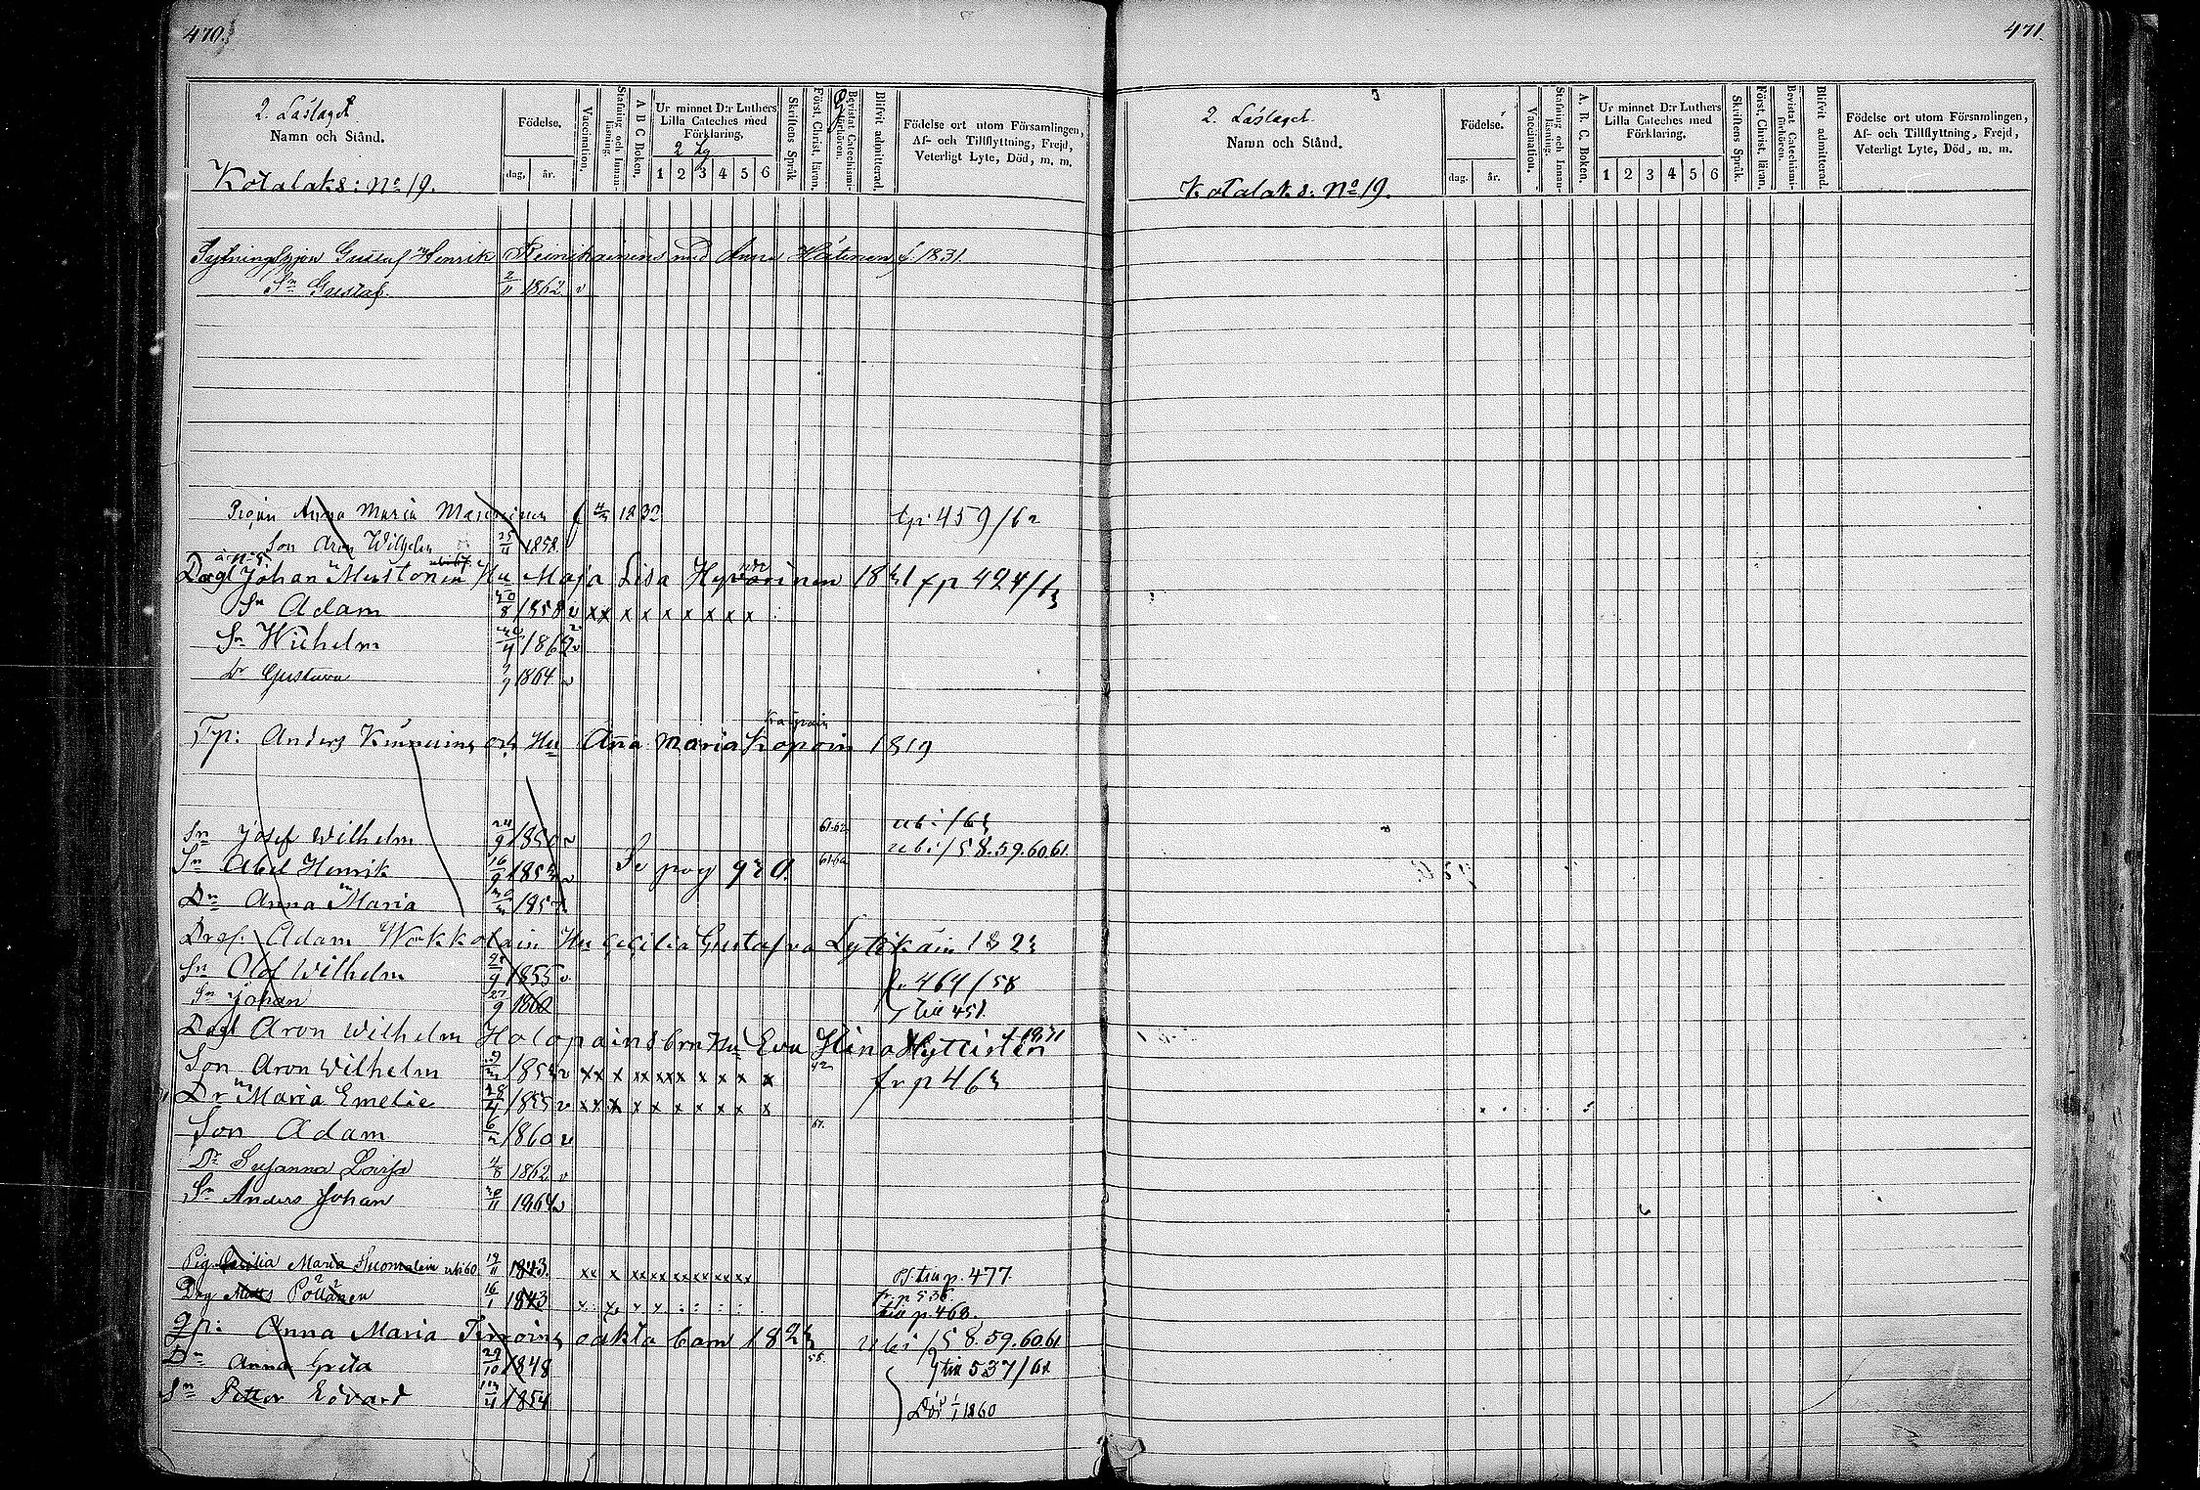 470.
2. Läslaget.
Namn och Stånd.
Kotalaks: No 19.
Födelse.
dag, år.
Vaccination.
Stafning och Innanläsning.
A B C Boken.
Ur minnet D:r Luthers Lilla Cateches med Förklaring.
2 Lg
1 2 3 4 5 6
Skriftens Språk
Först. Christ. läran.
Bevistat Catechismiförhören.
Blifvit admitterad.
Födelse ort utom Församlingen,
Af- och Tillflyttning, Frejd,
Veterligt Lyte, Död, m. m.
Sytningshjon Gustaf Henrik Reinikainens med Anna Hätinen f. 1831.
Sn Gustaf. 2/11 1862 v
Pigan Anna Maria f 1832 tp. 459/62
Son Aron Wilhelm 25/11 1858.
Dagl Johan Mustonen Hu Maja Lisa Hyvärinen fp 424/63
Sn Adam 1858 v x x x x x x x x x
Sn Wilhelm 1862 v
Dr Gustava 1864 v
Tp: Anders och Hu Anna Maria Kopoin 1819
Sn Josef Wilhelm 24/9 1850 v 61.62 ubi/63
Sn Abel Henrik 16/9 1853 v Se pag 920. ubi/58.59.60.61.
Dr Anna Maria 1857.
Adam Wokkolain Hu Cecilia Gustafva Lytikäin 1823
Sn Olof Wilhelm 1855 v fr 464/58
Sn Johan 27/9 1860 till 451.
Dagl Aron Wilhelm Holopain Hu Eva Stina
Son Aron Wilhelm 1853 v x x x x x x x x x x fr p 463
Dr Maria Emelie 28/4 1855 v x x x x x x x x x x
Son Adam 6/2 1860 v 67.
Dr Susanna Lovisa 4/8 1862 v
Sn Anders Johan 1864 v
Pig Cecilia Maria Suomalain ubi 60 19/11 1843. till p. 477.
Drg Matts Pöllänen 16/1 1843 fr. p 536.
till p. 460.
Anna Maria oäkta barn 1823 ubi/58.59.60.61
Dr Anna Greta 29/10 1848 till 537/61
Sn Petter Edvard 1854 Död 1/1 1860
471.
2. Läslaget.
Namn och Stånd.
Kotalaks: No 19.
Födelse.
dag. år.
Vaccination.
Stafning och Innanläsning.
A. B. C. Boken.
Ur minnet D:r Luthers Lilla Cateches med Förklaring.
1 2 3 4 5 6
Skriftens Språk.
Först. Christ. läran.
Bevistat Catechismiförhören.
Blifvit admitterad.
Födelse ort utom Församlingen,
Af- och Tillflyttning, Frejd,
Veterligt Lyte, Död, m. m.